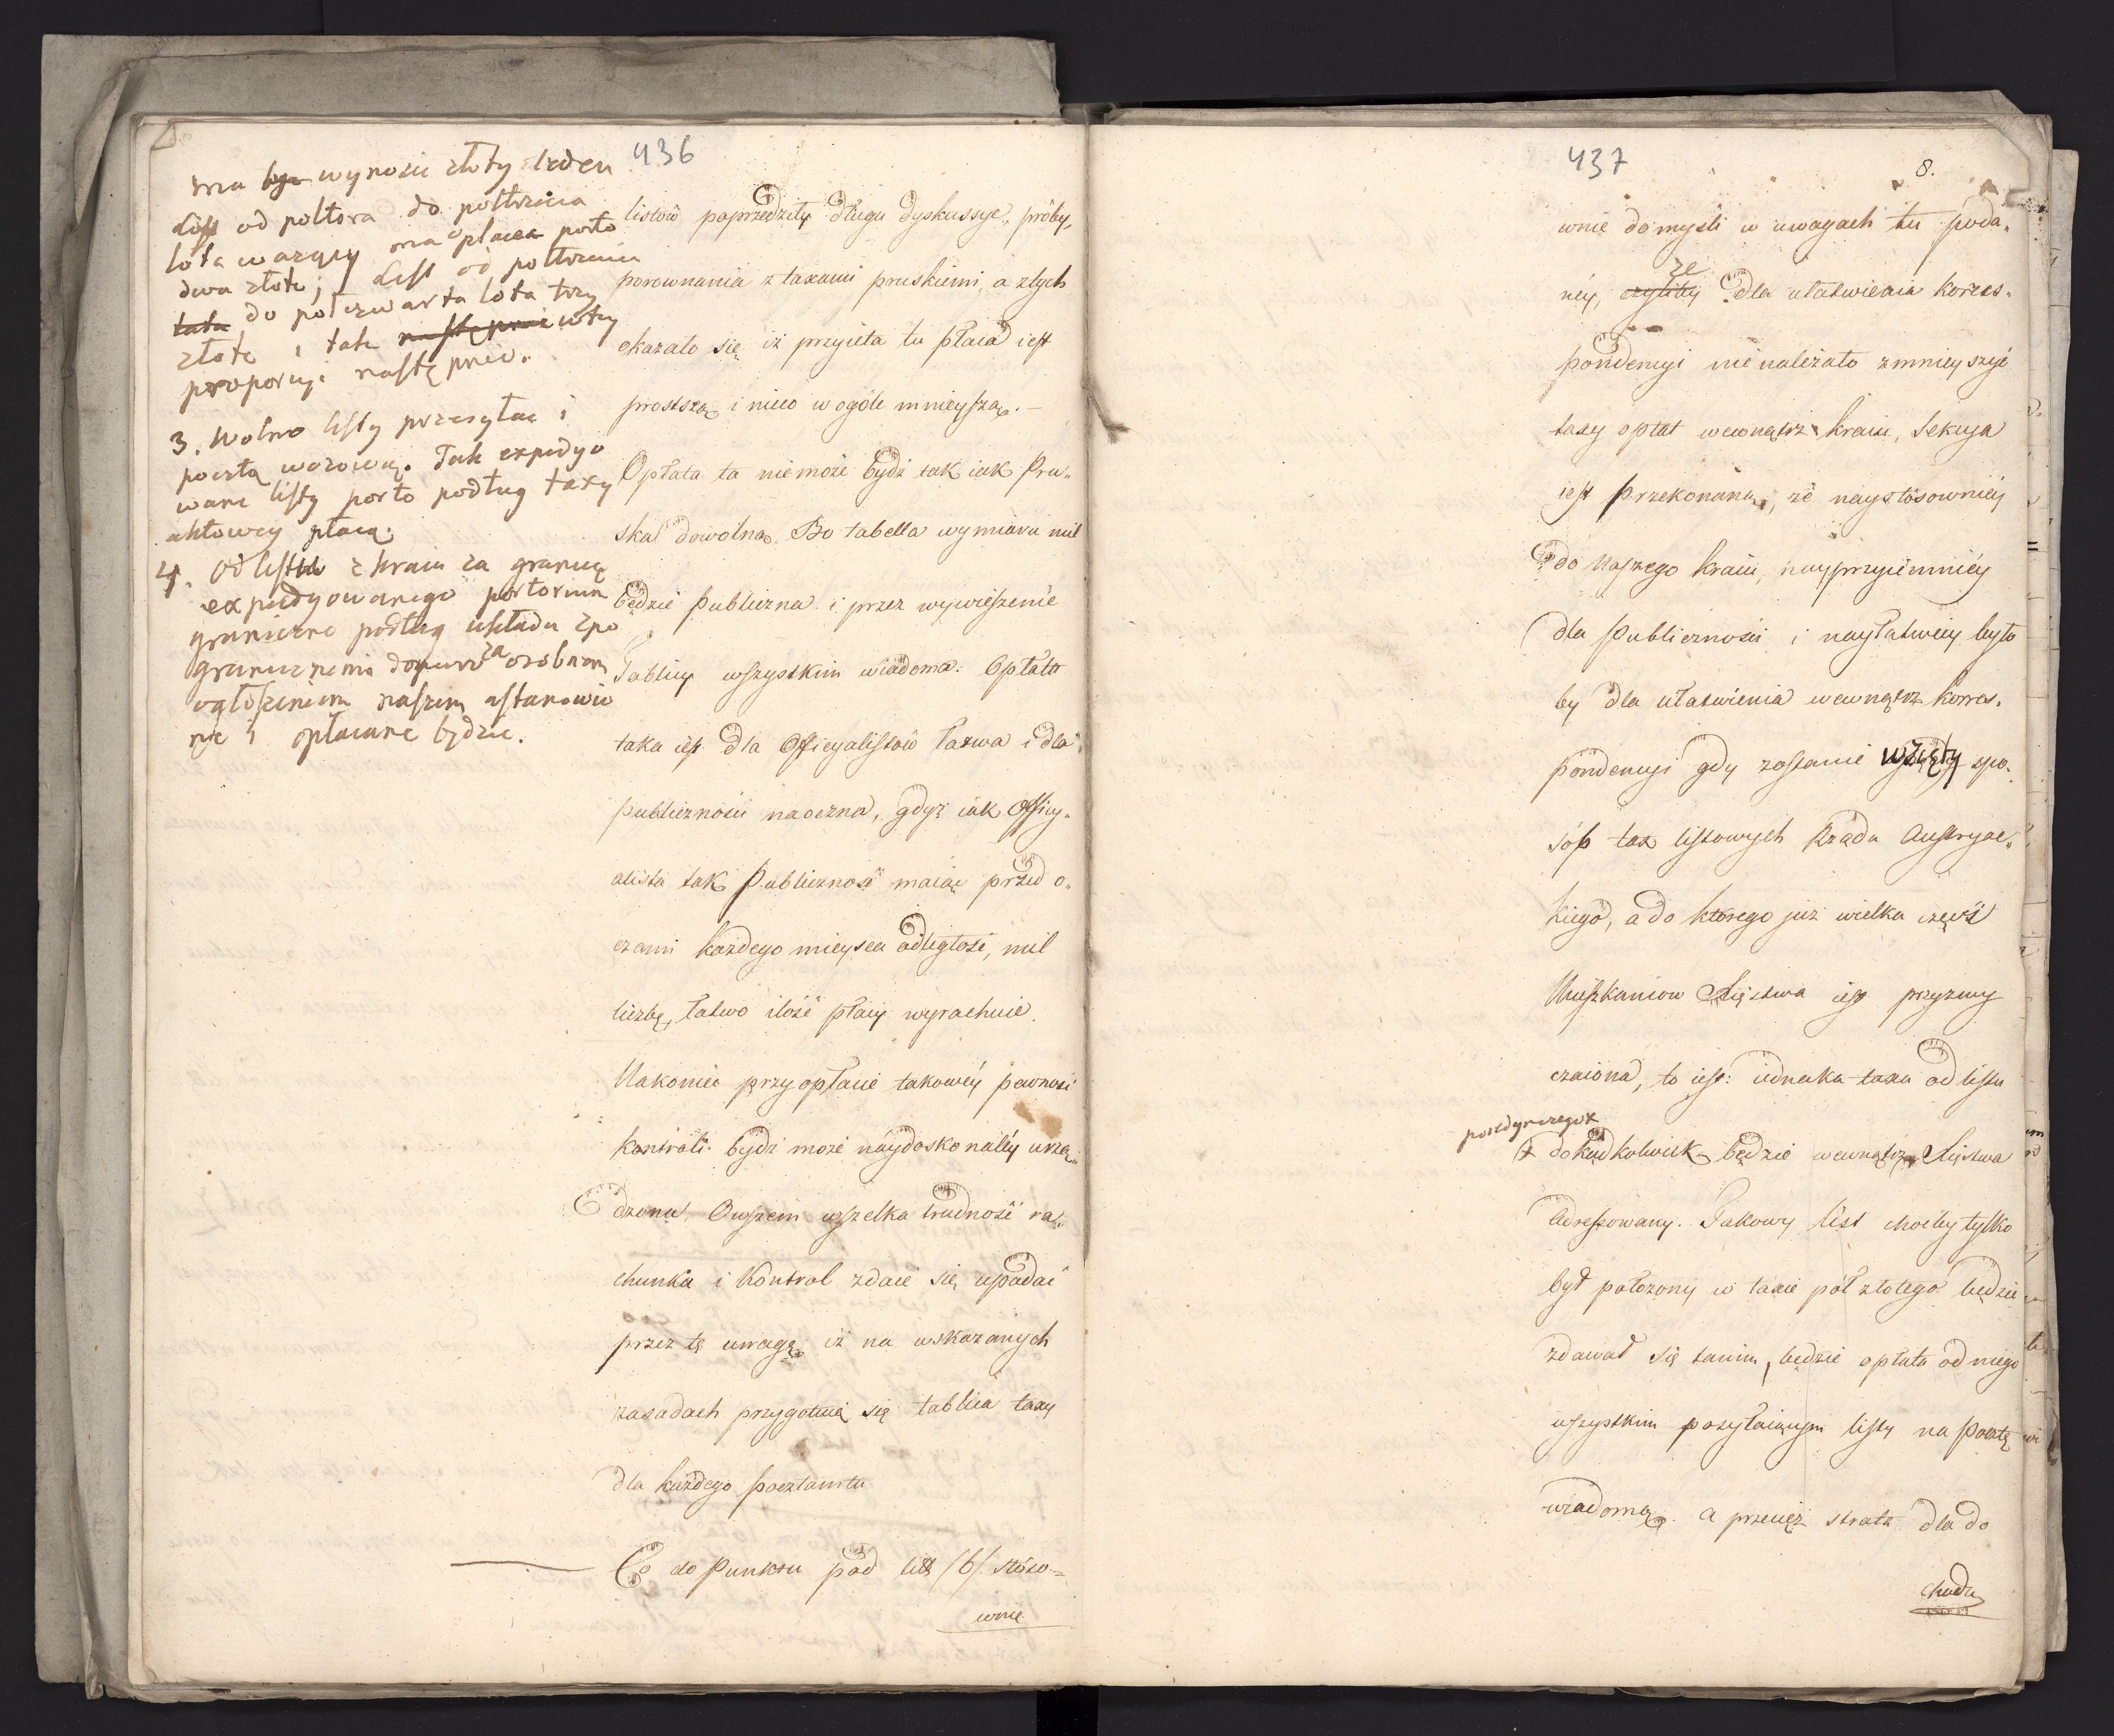 436
ma być wynosić złoty ieden
List od półtora do półtrzecia
lota ważący ma płacić porto
dwa złote; List od półtrzecia
lota do półczwarta lota trzy
złote i tak następnie w tey
proporcyi następnie.
3. Wolno listy przesyłać i
pocztą wozową. Tak expedyo
wane listy porto podług taxy
aktowey płacą.
4. Od listu z kraiu za granicę
expedyowanego portorium
graniczne podług układu z po
granicznemi za osobnem
ogłoszeniem naszem ustanowio
ne i opłacane będzie.
listów poprzedziły długie dyskussye, próby,
porównania z taxami pruskiemi, a z tych
okazało się iż przyięta tu płaca iest
prostszą i nieco w ogóle mnieyszą. —
Opłata ta nie może bydź tak iak Pru„
ska dowolną. Bo tabella wymiaru mil
będzie publiczna i przez wywieszenie
Tablicy wszystkim wiadoma. Opłata
taka iest dla Officyalistów łatwa i dla
publiczności naoczna, gdyż iak Officy„
alista tak Publiczność maiąc przed o„
czami każdego mieysca odległość, mil
liczbę, łatwo ilość płacy wyrachuie.
Nakoniec przy opłacie takowéy pewność
kontroli bydź może naydoskonaléy urzą„
dzona. Owszem wszelka trudność ra„
chunku i Kontrol zdaie się upadać
przez tę uwagę iż na wskazanych
zasadach przygotuie się tablica taxy
dla każdego pocztamtu
Co do Punktu pod litt /b/. stóso=
wnie
437
8.
wnie do myśli w uwagach tu poda„
néy, czyliby że dla ułatwienia korres„
pondencyi nie należało zmnieyszyć
taxy opłat wewnątrz kraiu, Sekcya
iest przekonana, że naystósowniéy
do Naszego kraiu, nayprzyiemniéy
dla Publiczności i nayłatwiey było
by dla ułatwienia wewnątrz korres„
pondencyi gdy zostanie wzięty spo„
sób tax listowych Rządu Austryac„
kiego, a do którego już wielka część
Mieszkańców Xięstwa iest przyzwy
czaiona, to iest: iednaka taxa od listu
poiedynczego x
x dokądkolwiek będzie wewnątrz Xięstwa
Adressowany. Takowy list choćby tylko
był położony w taxie pół złotego będzie
zdawał się tanim, będzie opłata od niego
wszystkim posyłaiącym listy na Pocztę
wiadomą. a przecięż strata dla do
chodu